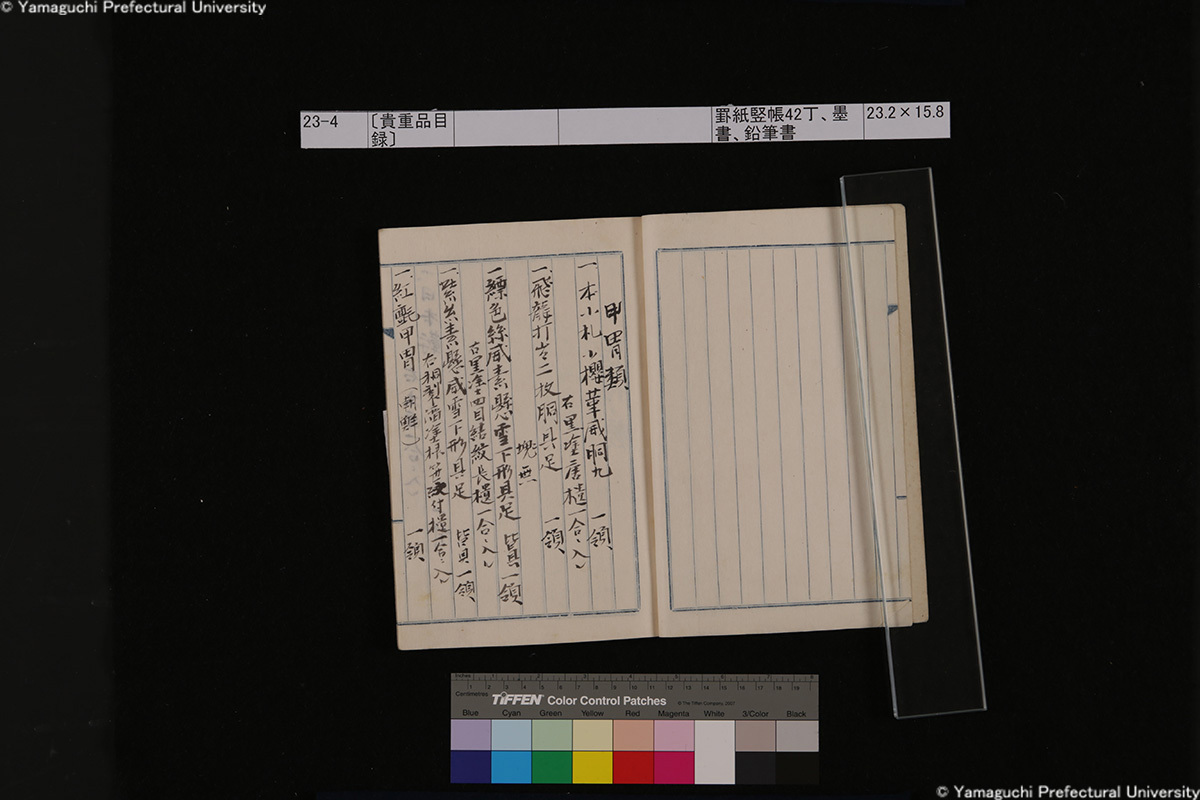 © Yamaguchi Prefectural University
23-4
〔貴重品目
録〕
罫紙竪帳42丁、墨
書、鉛筆書
23.2×15.8
甲冑類
一本小札小櫻革威胴丸 一領
右黒塗唐櫃一合ニ入ル
一飛龍打出二枚胴具足 一領
一縹色絲威素懸雪下形具足 皆具一領
右黒塗四目結紋長櫃一合ニ入ル
一紫糸素懸威雪下形具足 皆具一領
付櫃一合ニ入ル
一紅 甲冑 一領
Inches
Centimetres
TIFFEN Color Control Patches
© The Tiffen Company, 2007
Blue Cyan Green Yellow Red Magenta White 3/Color Black
© Yamaguchi Prefectural University